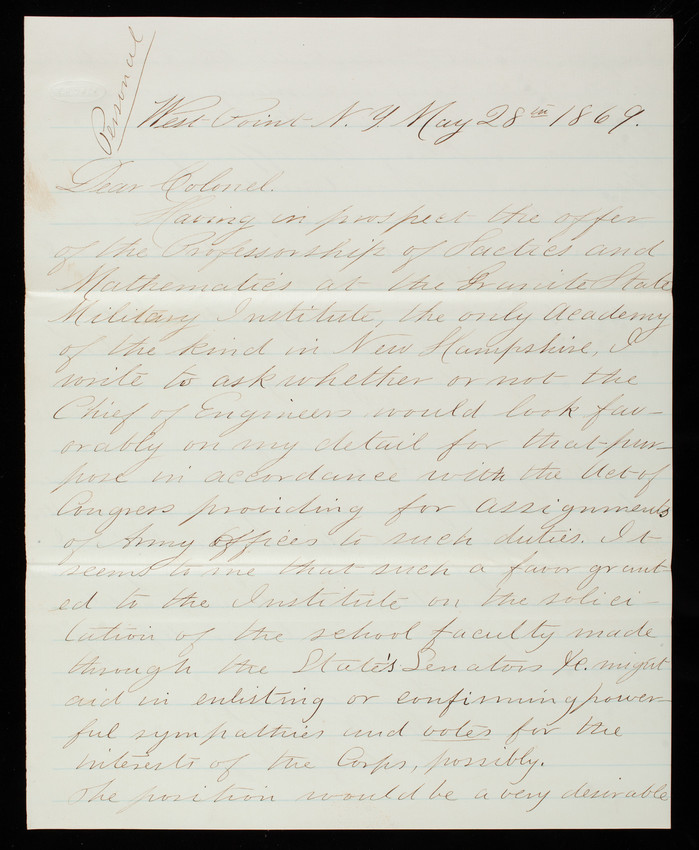 Personal
West Point N.Y. May 28th 1869.
Dear Colonel.
Having in prospect the offer
of the Professorship of Tactics and
Mathematics at the Granite State
Military Institute, the only Academy
of the kind in New Hampshire, I
write to ask whether or not the
Chief of Engineers would look fav-
orably on my detail for that pur-
pose in accordance with the Act of
Congress providing for assignments
of Army Offices to such duties. It
seems to me that such a favor grant-
ed to the Institute on the solici-
tation of the school faculty made
through the State's Senators &c. might
aid in enlisting or confirming power-
ful sympathies and votes for the
interests of the Corps, possibly.
The position would be a very desirable